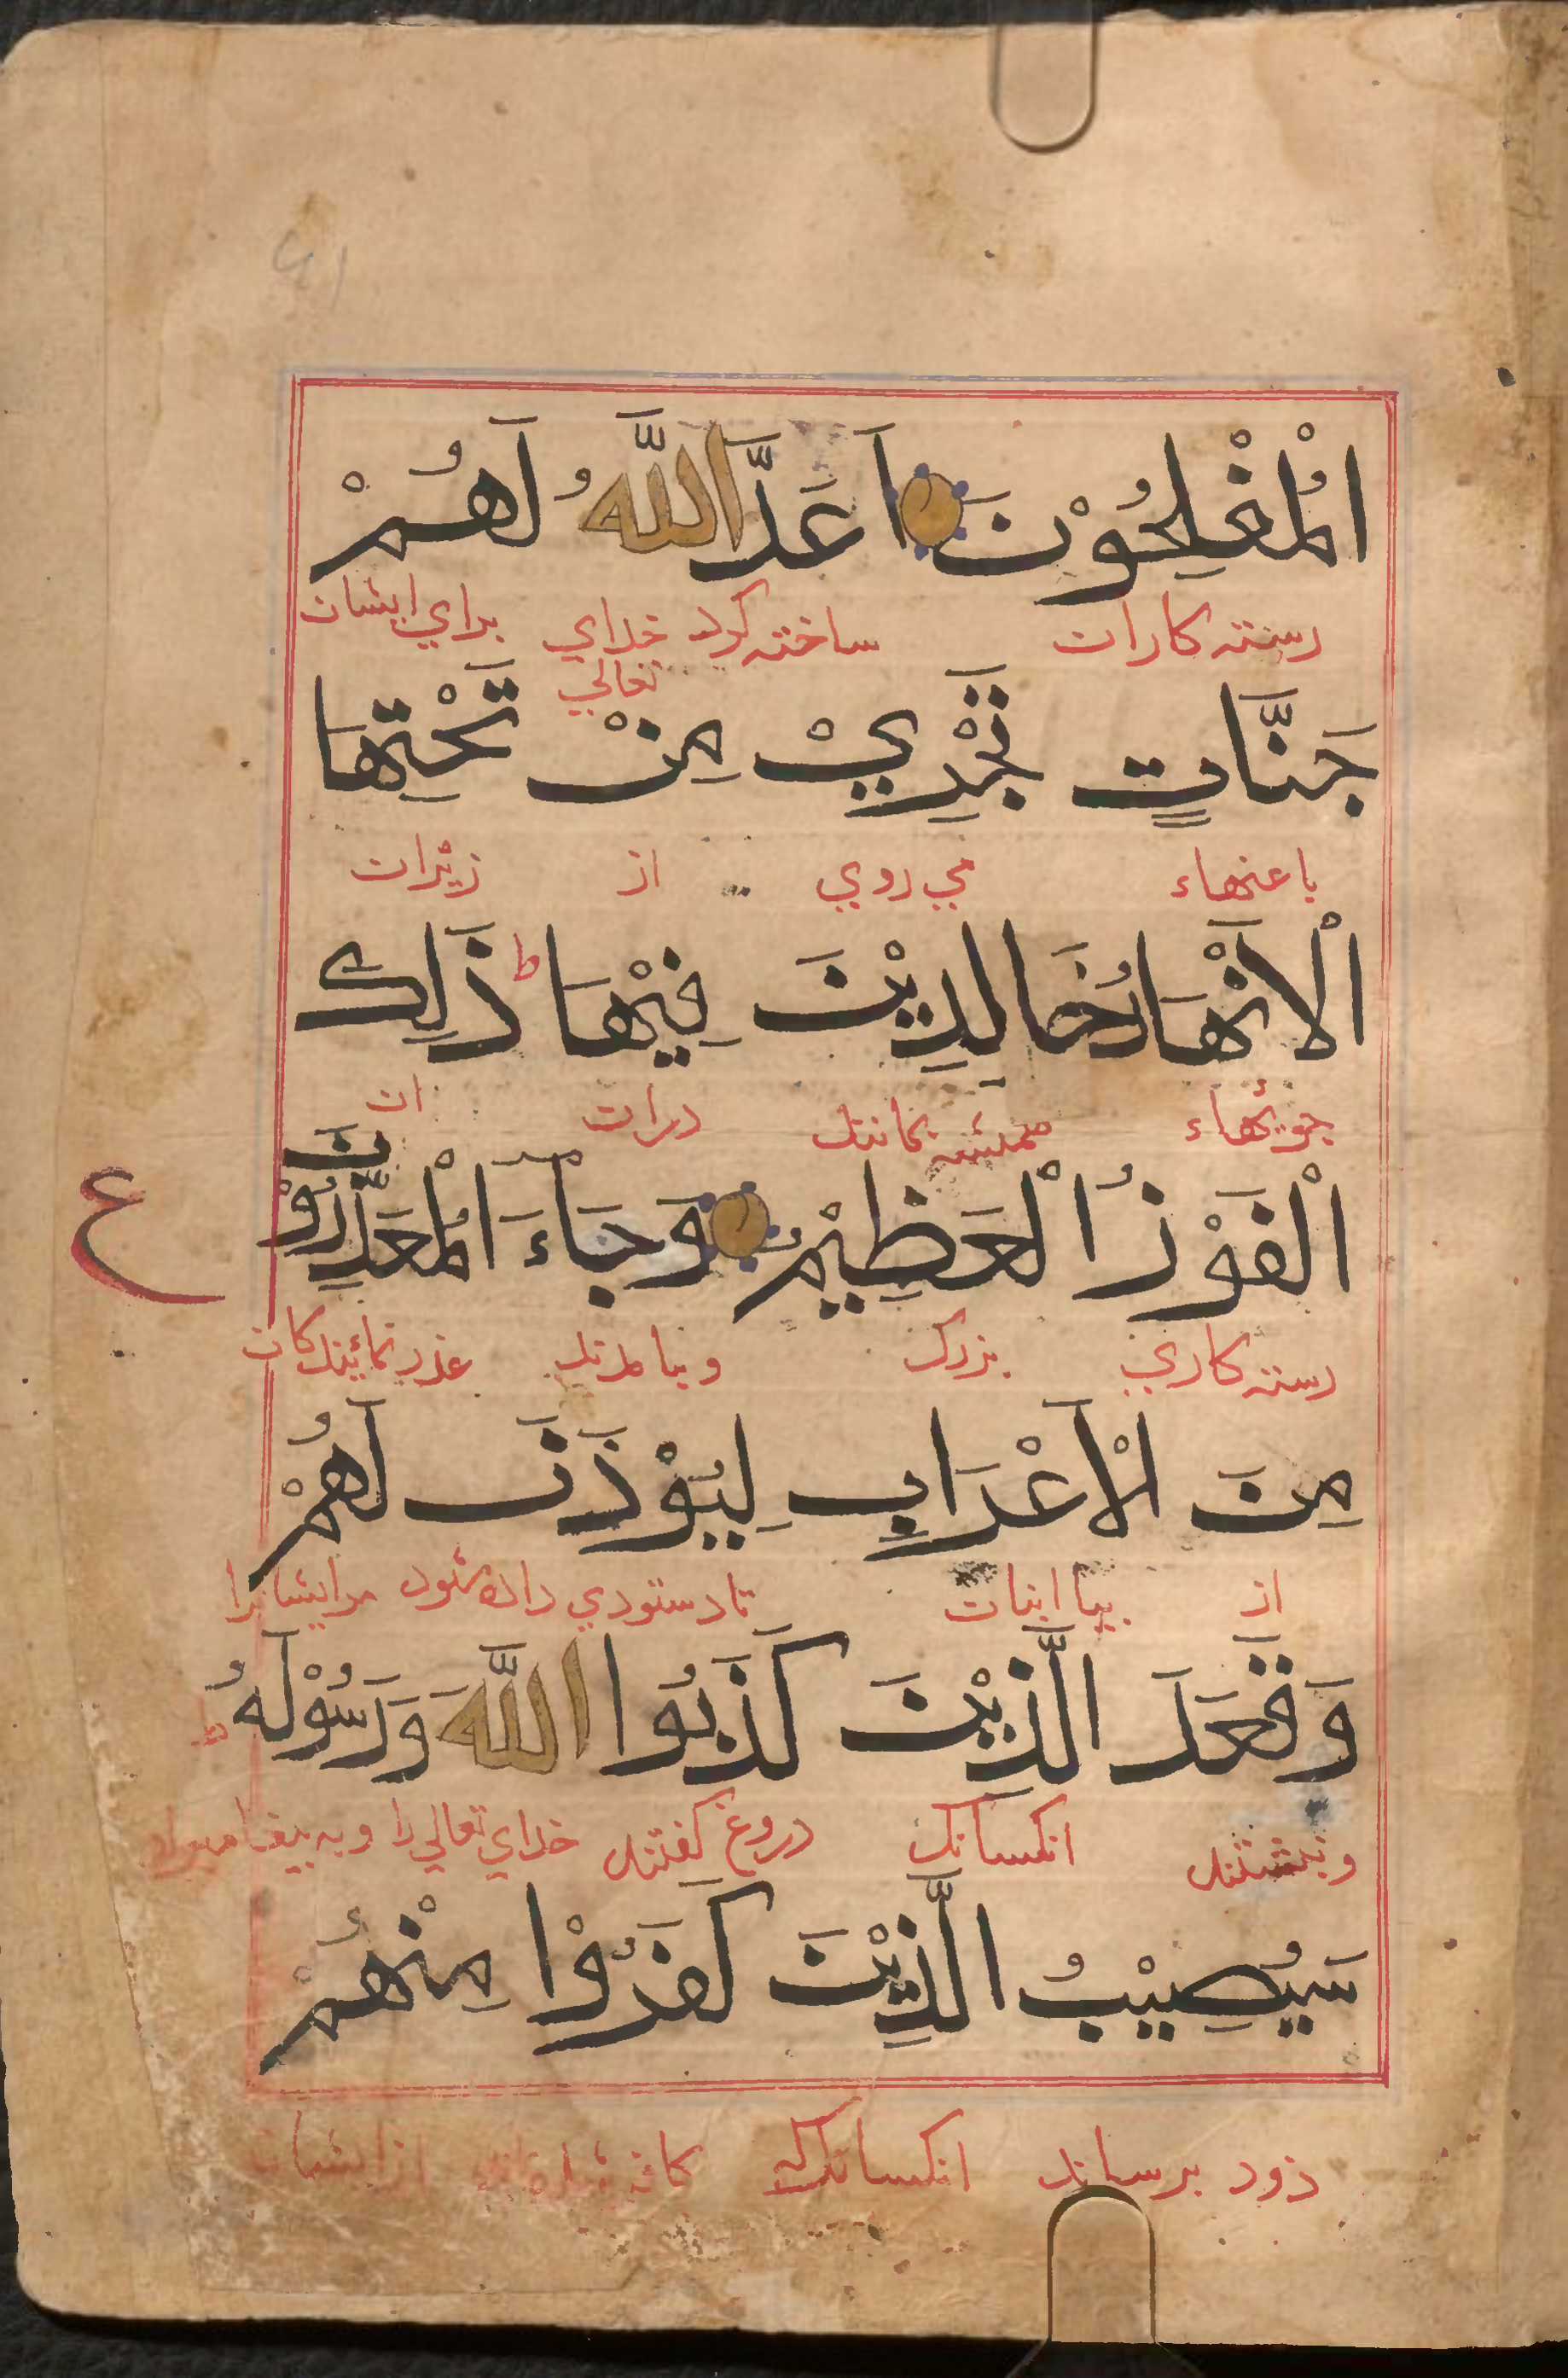 الْمُفْلِحُوْنَ اَعَدَّ اللّٰهُ لَهُمْ
رسته كاران ساخته كرد خداي تعالي براي ايشان
جَنَّاتٍ تَجْرِيْ مِنْ تَحْتِهَا
باغهاء مي روي از زيران
الْاَنْهَارُ خَالِدِيْنَ فِيْهَا ط ذَلِكَ
جويهاء هميشه بمانند دران ان
الْفَوْزُ الْعَظِيْمُ وَجَاءَ الْمُعَذِّرُوْنَ
رسته كاري بزرك وبيامدند عذر نمائيندكان
ع
مِنَ الْاَعْرَابِ لِيُؤْذَنَ لَهُمْ
از بيابانان تا دستوري داده شود مرايشانرا
وَقَعَدَ الَّذِيْنَ كَذَبُوا اللّٰهَ وَرَسُوْلَهُ ط
وبنشستند انكسانك دروغ كفتند خداي تعالي را وبه پيغامبر
سَيُصِيْبُ الَّذِيْنَ كَفَرُوْا مِنْهُمْ
زود برساند انكسانكه از ايشان